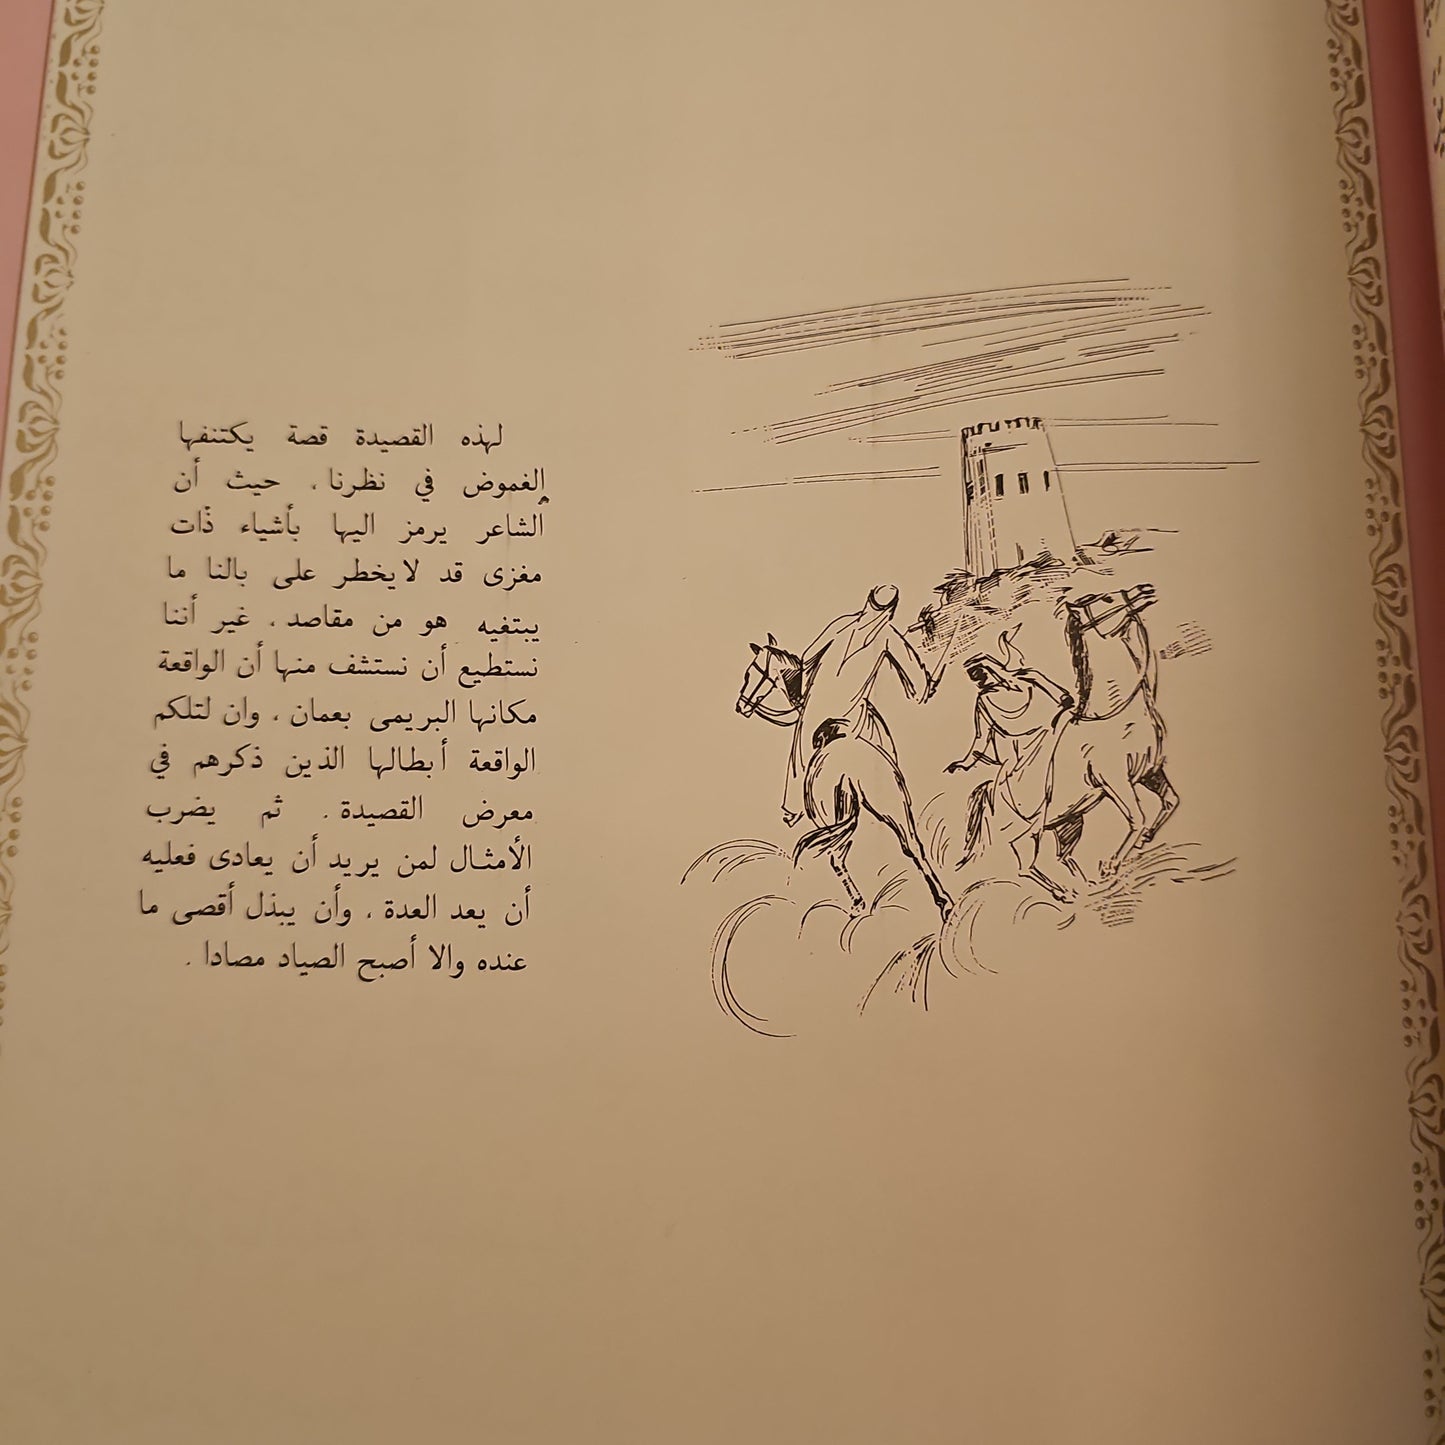 لهذه القصيدة قصة يكتنفها
الغموض في نظرنا، حيث أن
الشاعر يرمز اليها بأشياء ذات
مغزى قد لايخطر على بالنا ما
يبتغيه هو من مقاصد، غير أننا
نستطيع أن نستشف منها أن الواقعة
مكانها البريمى بعمان، وان لتلكم
الواقعة أبطالها الذين ذكرهم في
معرض القصيدة. ثم يضرب
الأمثال لمن يريد أن يعادى فعليه
أن يعد العدة، وأن يبذل أقصى ما
عنده والا أصبح الصياد مصادا.